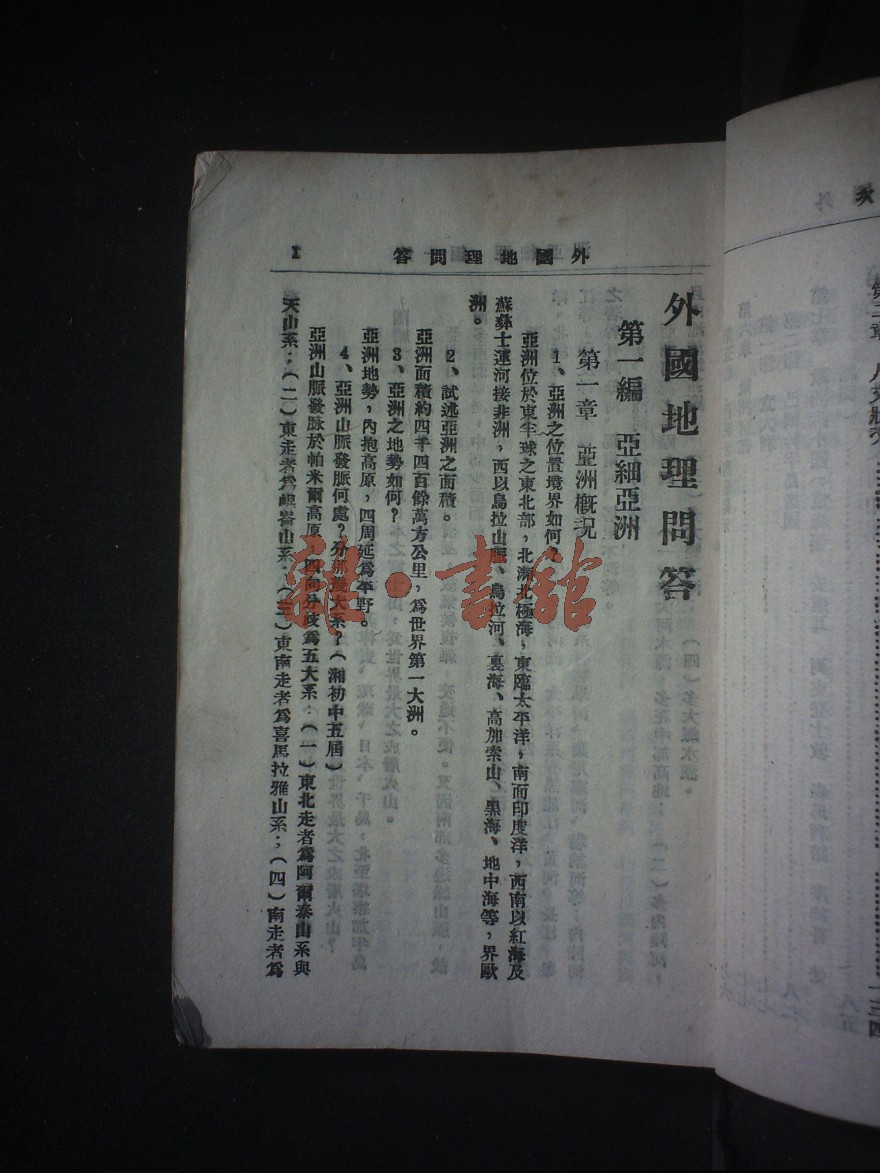 外國地理問答
1
外國地理問答
第一編 亞細亞洲
第一章 亞洲概況
1、亞洲之位置境界如何?
亞洲位於東半球之東北部,北瀕北極海,東臨太平洋,南面印度洋,西南以紅海及
蘇彝士運河接非洲,西以烏拉山脈、烏拉河、裏海、高加索山、黑海、地中海等,界歐
洲。
2、試述亞洲之面積。
亞洲面積約四千四百餘萬方公里,爲世界第一大洲。
3、亞洲之地勢如何?
亞洲地勢,內抱高原,四周延爲平野。
4、亞洲山脈發脈何處?分那幾大系?(湘初中五屆)
亞洲山脈發脈於帕米爾高原,四向分歧爲五大系:(一)東北走者爲阿爾泰山系與
天山系;(二)東走者爲崐崙山系;(三)東南走者爲喜馬拉雅山系;(四)南走者爲
雜·書館
外